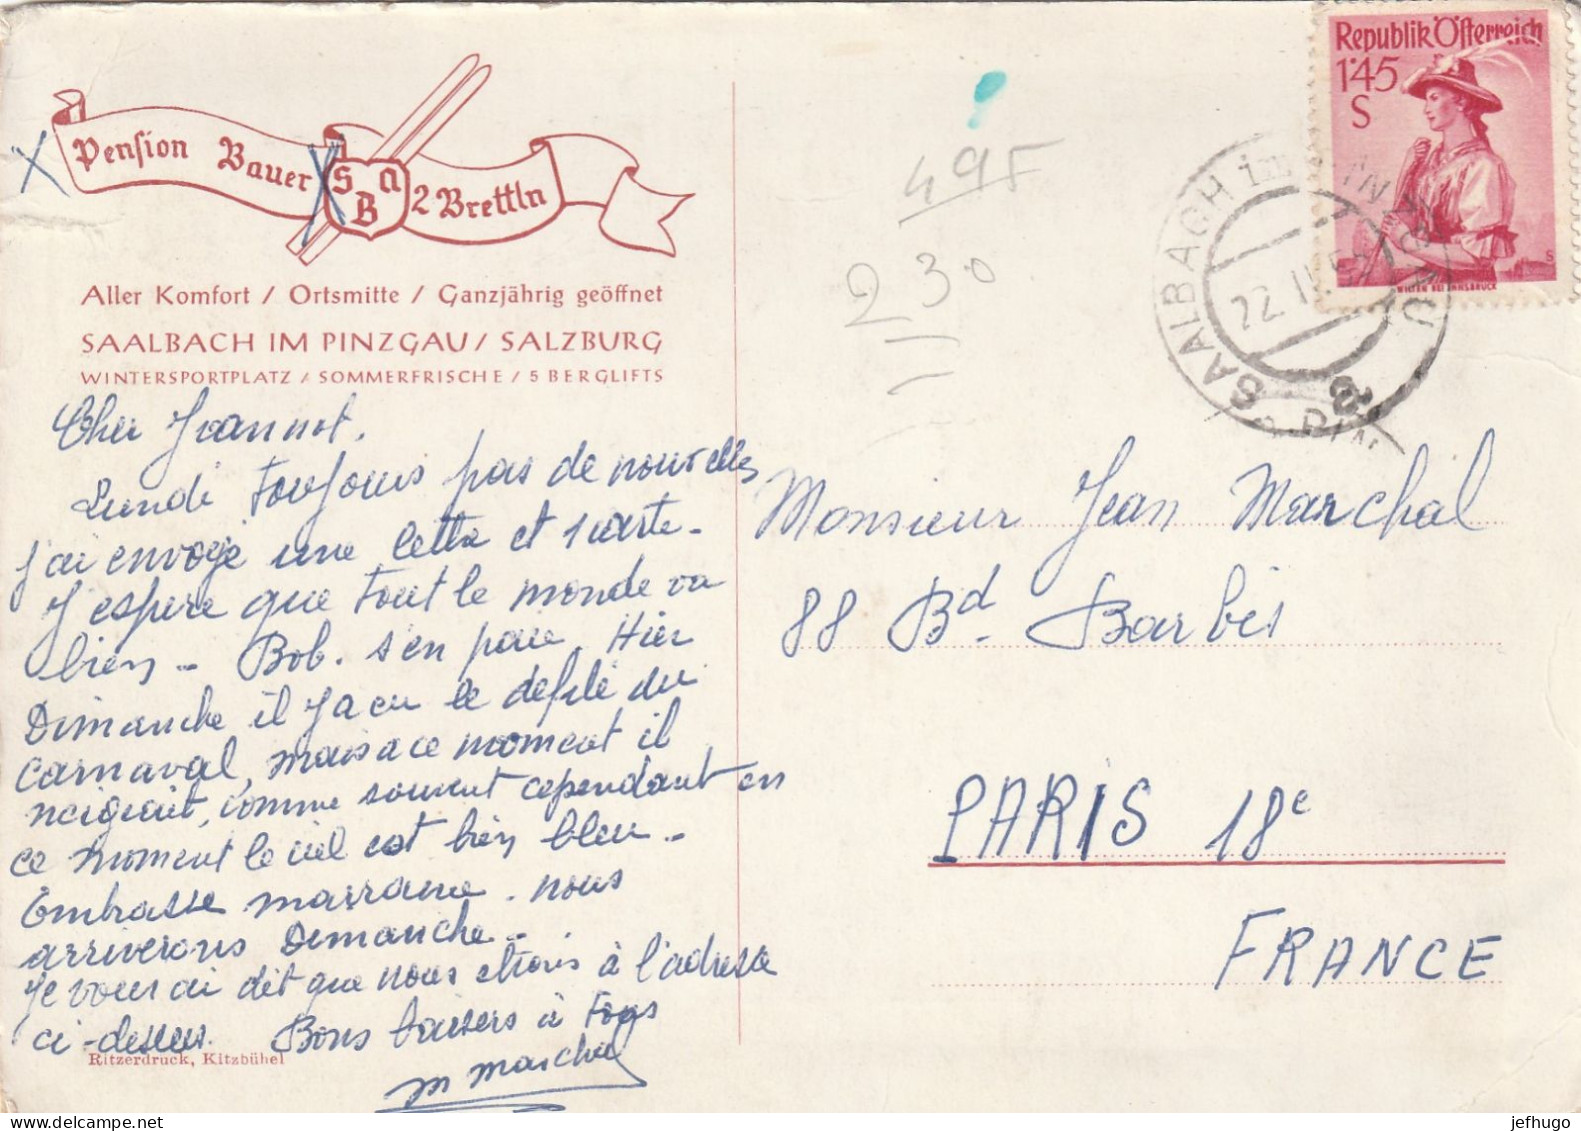 Pension Bauer
S B a
2 Brettln
Aller Komfort / Ortsmitte / Ganzjährig geöffnet
SAALBACH IM PINZGAU / SALZBURG
WINTERSPORTPLATZ / SOMMERFRISCHE / 5 BERGLIFTS
Cher Jeannot.
Lundi toujours pas de nouvelles
j'ai envoyé une lettre et 1 carte -
J'espère que tout le monde va
bien - Bob. s'en paie. Hier
Dimanche il y a eu le défilé du
carnaval, mais a ce moment il
neigeait, comme souvent cependant en
ce moment le ciel est bien bleu -
Embrasse marraine. nous
arriverons Dimanche -
Je vous ai dit que nous étions à l'adresse
ci-dessus. Bons baisers à tous
M Marchal
Ritzerdruck, Kitzbühel
495
230
Republik Österreich
1'45
S
WILTEN BEI INNSBRUCK
SAALBACH im PINZGAU
22. II. 5
a
Monsieur Jean Marchal
88 Bd. Barbès
PARIS 18e
FRANCE
jefhugo